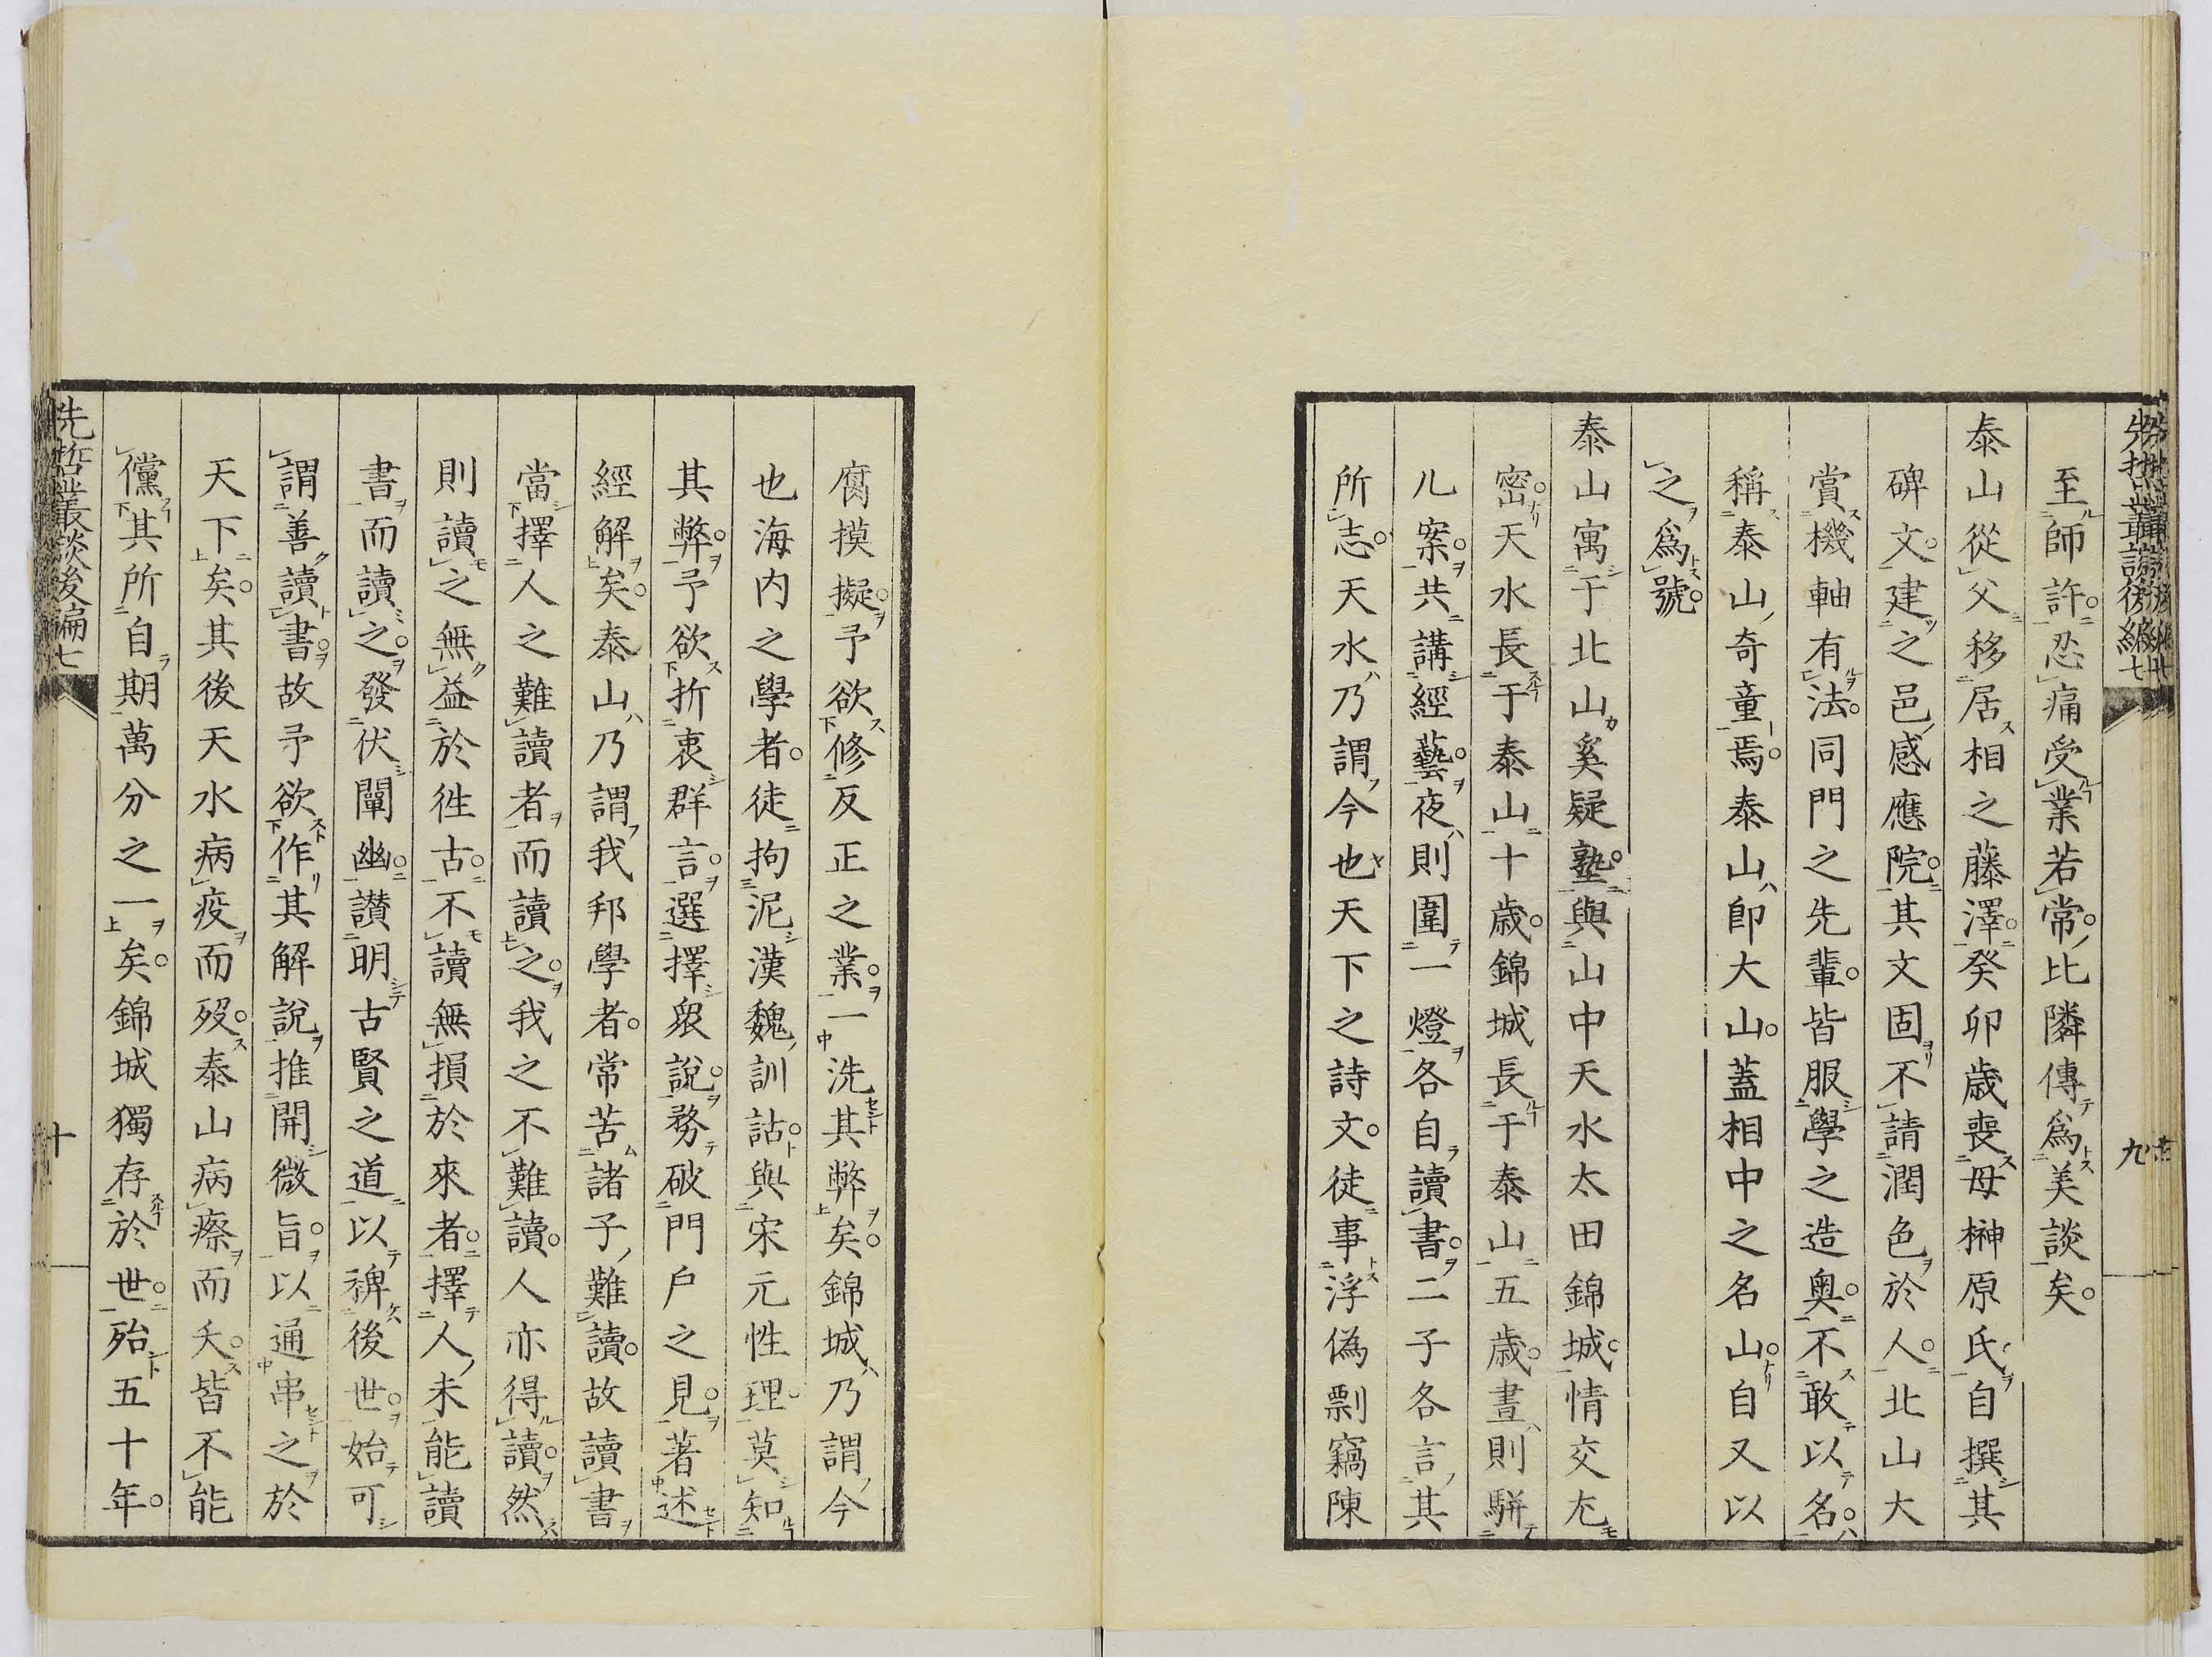 先哲叢談後編七
九
至師許。忍痛受業若常。比隣傳爲美談矣。
泰山從父移居相之藤澤。癸卯歳喪母榊原氏。自撰其
碑文。建之邑感應院。其文固不請潤色於人。北山大
賞機軸有法。同門之先輩。皆服學之造奥。不敢以名。
稱泰山奇童焉。泰山卽大山。蓋相中之名山。自又以
之爲號。
泰山寓于北山奚疑塾。與山中天水太田錦城。情交尤
密。天水長于泰山十歳。錦城長于泰山五歳。晝則駢
几案。共講經藝。夜則圍一燈各自讀書。二子各言其
所志。天水乃謂今也天下之詩文。徒事浮偽剽竊陳
腐摸擬。予欲修反正之業。一洗其弊矣。錦城乃謂今
也海内之學者。徒拘泥漢魏訓詁。與宋元性理。莫知
其弊。予欲折衷群言。選擇衆說。務破門戶之見。著述
經解矣。泰山乃謂我邦學者。常苦諸子難讀。故讀書
當擇人之難讀者而讀之。我之不難讀。人亦得讀。然
則讀之無益於徃古。不讀無損於來者。擇人未能讀
書而讀之。發伏闡幽。讃明古賢之道以裨後世。始可
謂善讀書。故予欲作其解說推開微旨。以通串之於
天下矣。其後天水病疫而歿。泰山病瘵而夭。皆不能
儻其所自期萬分之一矣。錦城獨存於世。殆五十年。
先哲叢談後編七
十